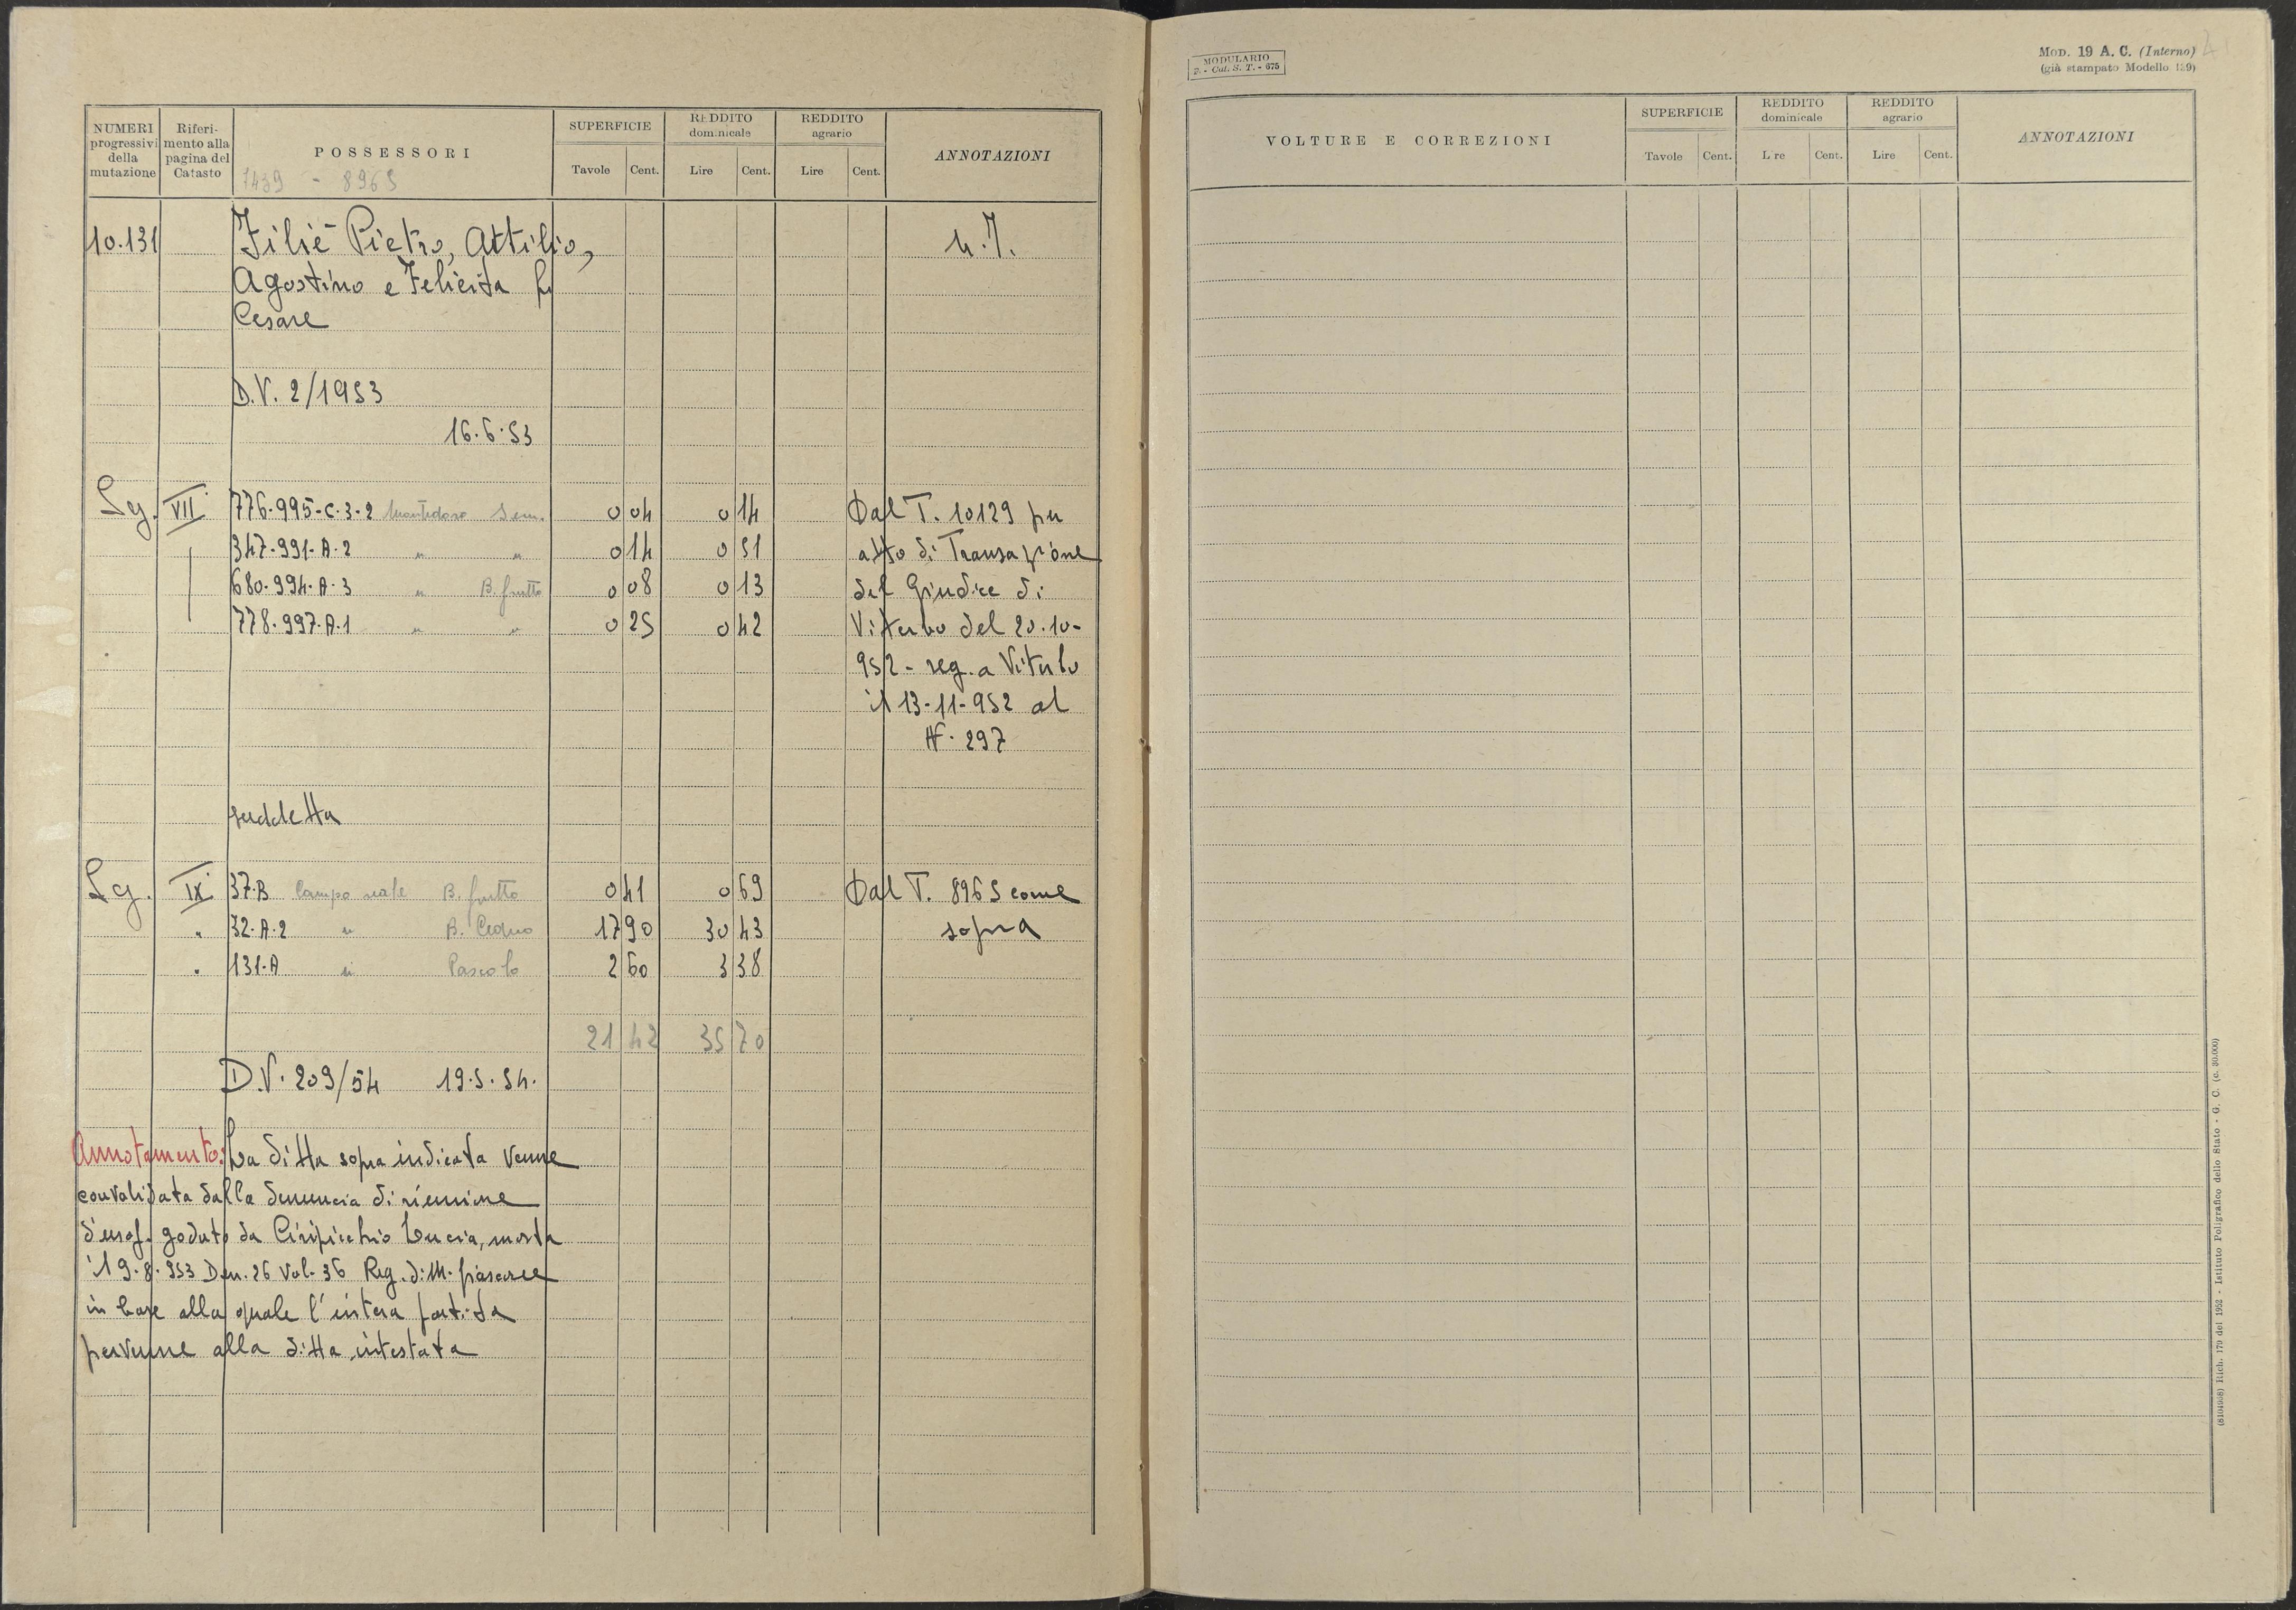 NUMERI progressivi della mutazione
Riferimento alla pagina del Catasto
POSSESSORI
7439 - 8965
SUPERFICIE
Tavole Cent.
REDDITO dominicale
Lire Cent.
REDDITO agrario
Lire Cent.
ANNOTAZIONI
10.131 Filiè Pietro, Attilio,
Agostino e Felicita fu
Cesare
D.V. 2/1953
16.6.53
Lg. VII 776-995-C-3-2 Montedoro Sem. 0 04 0 14 Dal T. 10129 per
347-991-A-2 " " 0 14 0 51 atto di Transazione
680-994-A-3 " B. frutto 0 08 0 13 del Giudice di
778-997-A-1 " " 0 25 0 42 Viterbo del 20-10-
952 - reg. a Viterbo
il 13-11-952 al
N. 297
suddetta
Lg. IX 37-B Campo B. frutto 0 41 0 69 Dal T. 8965 come
" 32-A-2 " B. Ceduo 17 90 30 43 sopra
" 131-A " Pascolo 2 60 3 38
21 42 35 70
D.V. 209/54 19.5.54.
Annotamento: La ditta sopra indicata venne
convalidata dalla denuncia di riunione
d'usof. goduto da Ciripicchio Lucia, morta
il 9.8.953 Den. 26 Vol. 36 Reg. di M. fiascone
in base alla quale l'intera partita
pervenne alla ditta intestata
MODULARIO
F. - Cat. S. T. - 675
MOD. 19 A. C. (Interno)
(già stampato Modello 139)
VOLTURE E CORREZIONI
SUPERFICIE
Tavole Cent.
REDDITO dominicale
Lire Cent.
REDDITO agrario
Lire Cent.
ANNOTAZIONI
(8104908) Rich. 179 del 1952 - Istituto Poligrafico dello Stato - G. C. (c. 80.000)